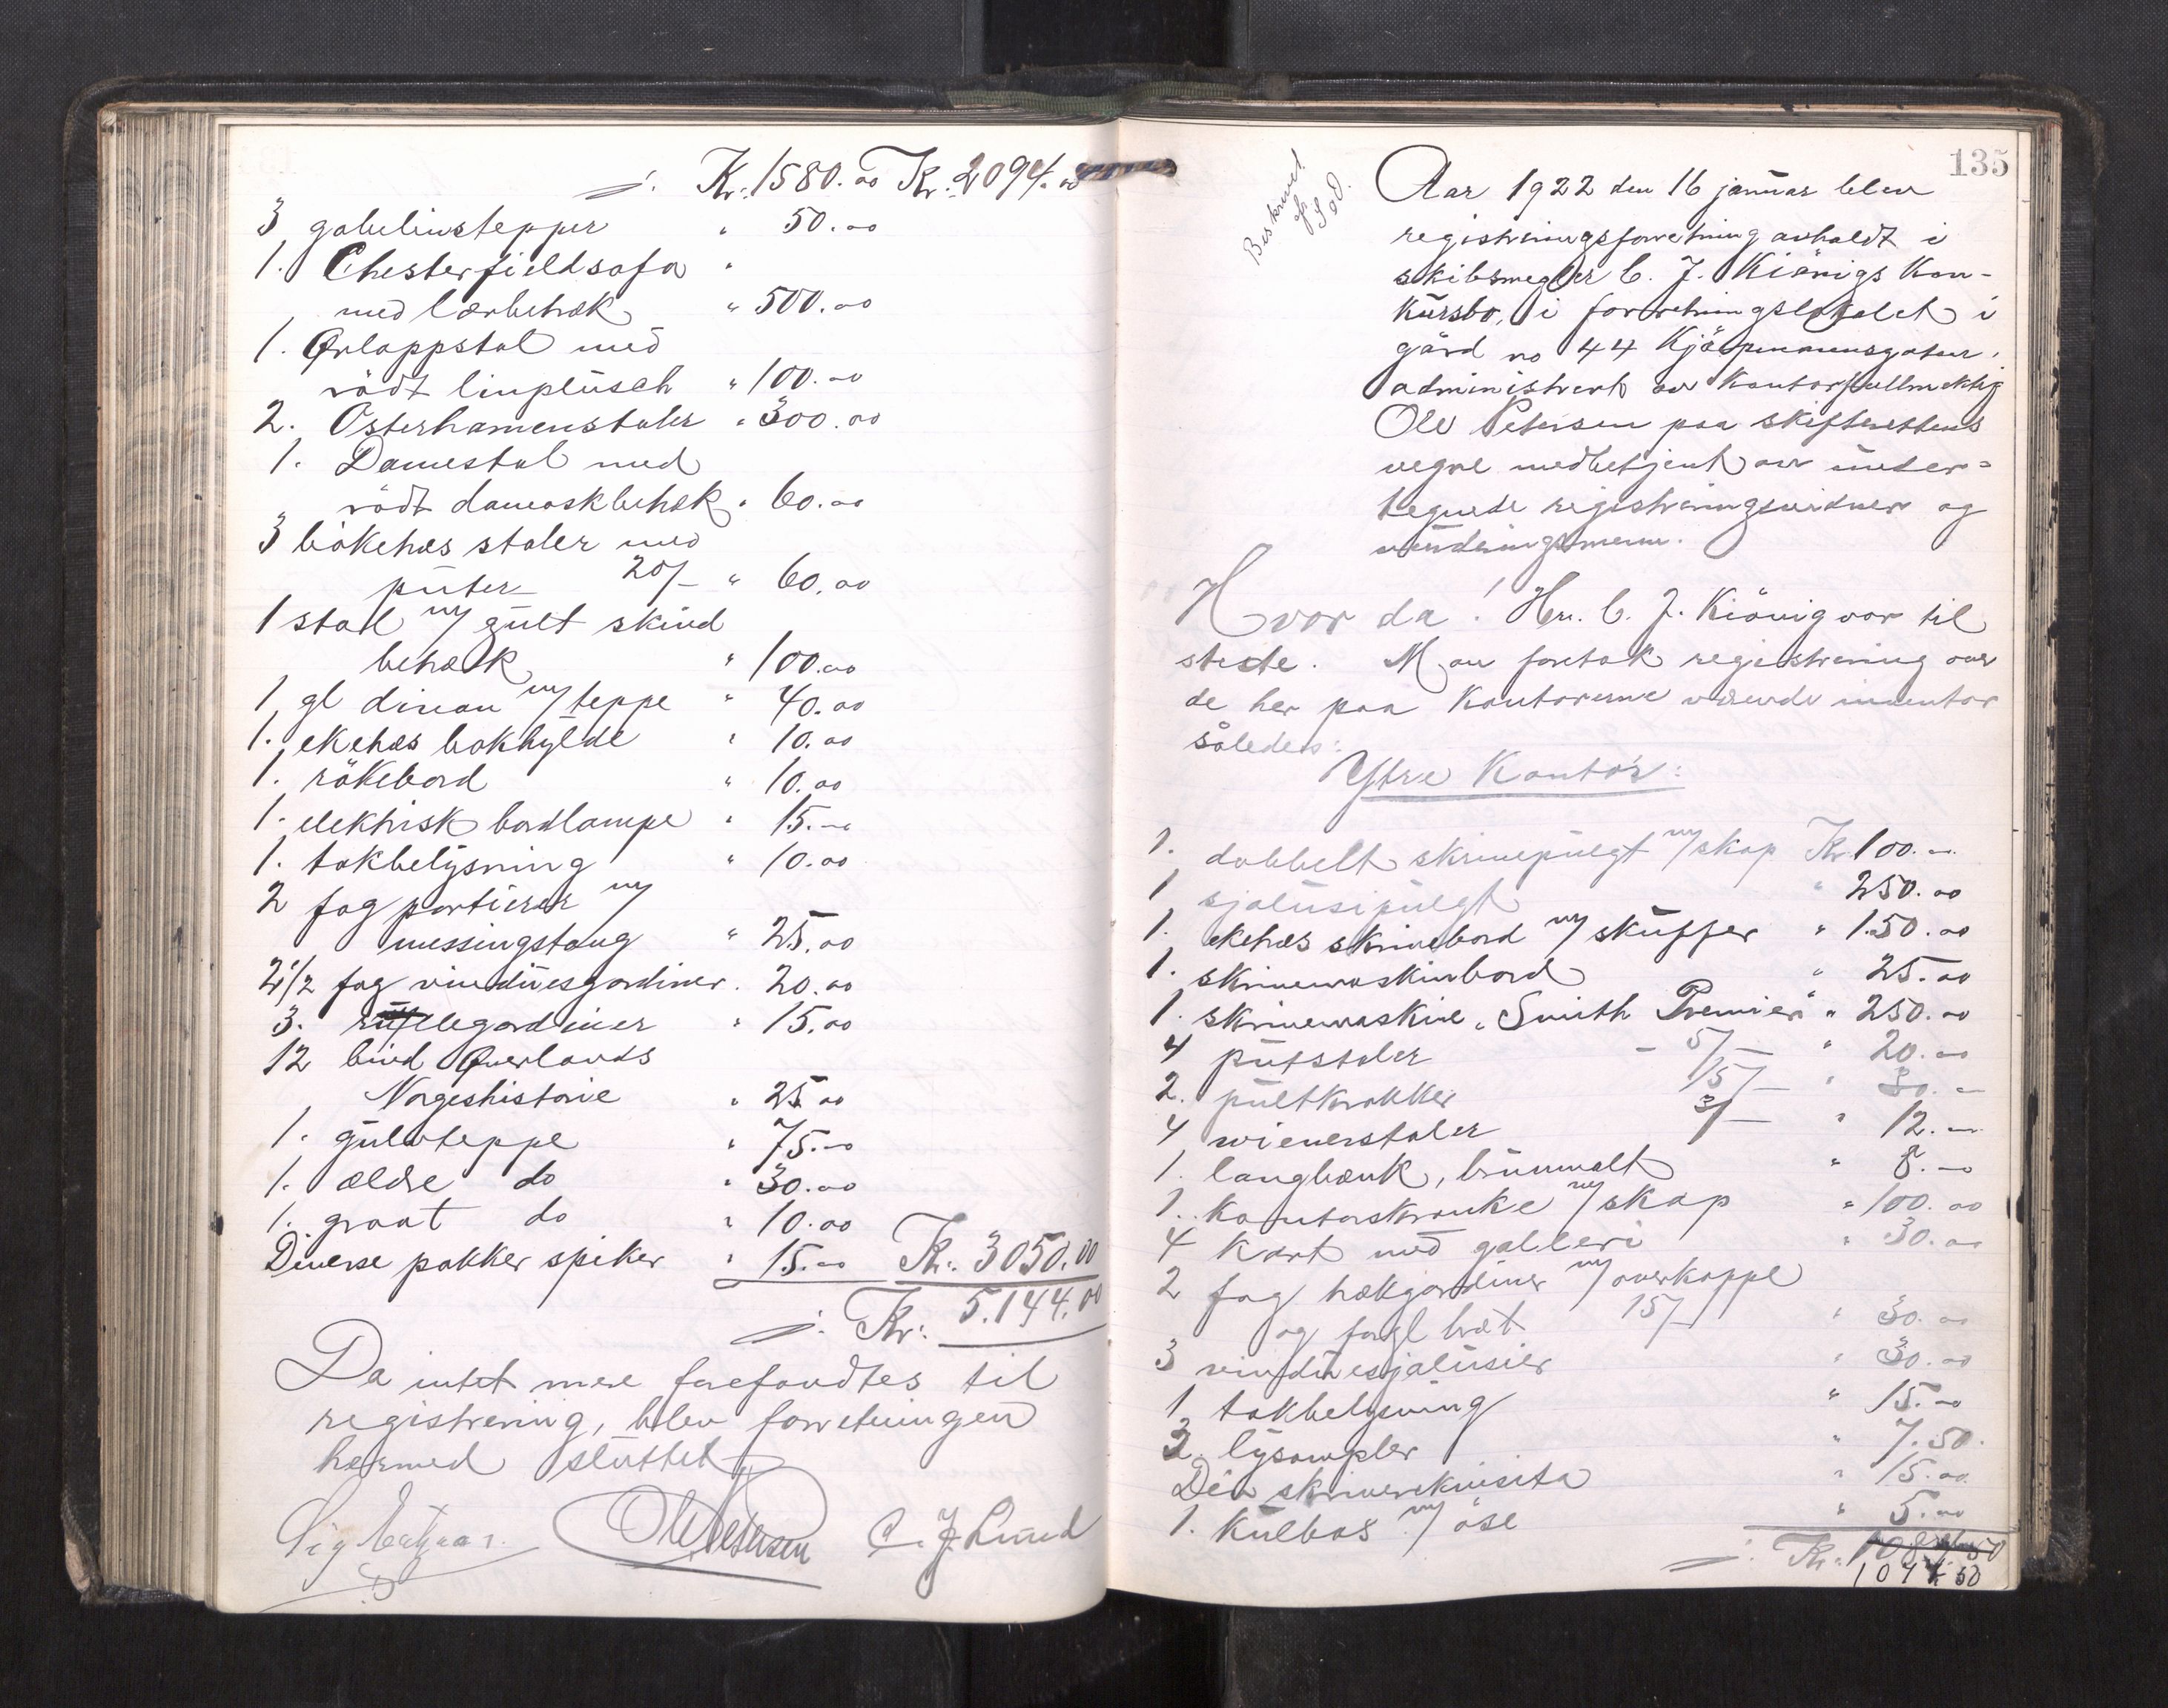 Kr. 1580.00 Kr. 2094.00
3 gobelinstepper " 50.00
1. Chesterfieldsofa "
med lærbetræk " 500.00
1. Ørlappstol med
rödt linplüsch " 100.00
2. Österhamenstoler " 300.00
1. Damestol med
rödt damaskbetræk " 60.00
3 bökehæs stoler med
püter 20/- " 60.00
1 stol m/ gült skind
betræk " 100.00
1 gl divan m/ teppe " 40.00
1. ekehæs bokhylde " 10.00
1. rökebord " 10.00
1. elektrisk bordlampe " 15.00
1. takbelysning " 10.00
2 fag portierer m/
messingstang " 25.00
2 1/2 fag vindüesgardiner " 20.00
3. rüllegardiner " 15.00
12 bind Överlands
Norgeshistorie " 25.00
1. gülvteppe " 75.00
1. ældre do " 30.00
1. graat do " 10.00
Diverse pakker spiker " 15.00 Kr. 3050.00
Kr. 5.144.00
Da intet mere forefandtes til
registrering, blev forretningen
hermed slüttet
Ole Petersen C. J. Lund
135
Beskrevet
f. S. d.
Aar 1922 den 16 januar blev
registreringsforretning avholdt i
skibsmegler C. J. Kiönigs Kon-
kürsbo, i forretningslokalet i
gård no 44 Kjöpmannsgaten,
administrert av Kontorfullmektig
Ole Petersen paa skifterettens
vegne medbetjent av ünder=
tegnede registreringsvidner og
vürderingsmenn.
Hvor da! Hr. C. J. Kiönig var til
stede. Man foretok registrering over
de her paa Kontorerne værende inventar
således:
Ytre Kontor:
1. dobbelt skrivepulgt m/ skap Kr. 100.00
1 sjalusipulgt " 250.00
1. ekehæs skrivebord m/ sküffer " 150.00
1. skrivemaskinbord " 25.00
1. skrivemaskine "Smith Premier" " 250.00
4 pütstoler - 5/- " 20.00
2. pültkrakker 15/- " 30.00
4 wienerstoler 3/- " 12.00
1. langbænk, brünmalt " 8.00
1. Kontorskranke m/ skap " 100.00
4 Kart med galleri " 30.00
2 fag hækgardiner m/ overkappe
og fagl bræt 15/- " 30.00
3 vindüesjalüsier " 30.00
1 takbelysning " 15.00
3 lysampler " 7.50
Div skriverekvisita " 15.00
1. Külbos m/ öse " 5.00
Kr. 1077.50